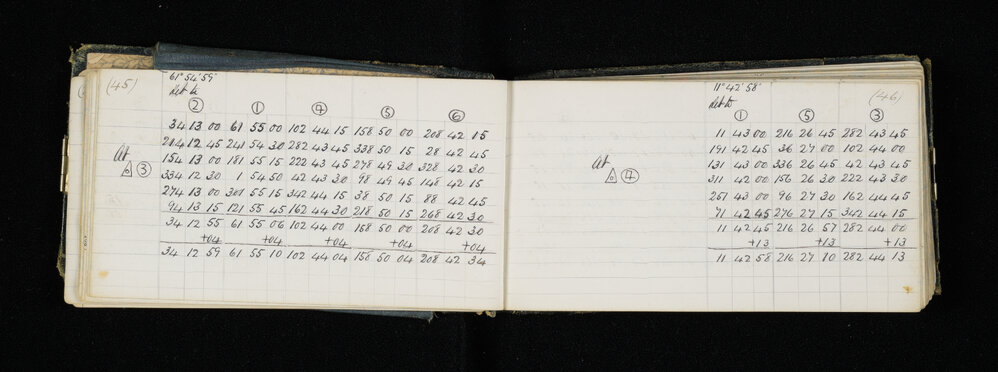 (45)
61° 54' 59"
② ① ④ ⑤ ⑥
34 13 00 61 55 00 102 44 15 158 50 00 208 42 15
214 12 45 241 54 30 282 43 45 338 50 15 28 42 45
154 13 00 181 55 15 222 43 45 278 49 30 328 42 30
334 12 30 1 54 50 42 43 30 98 49 45 148 42 15
274 13 00 301 55 15 342 44 15 38 50 15 88 42 45
94 13 15 121 55 45 162 44 30 218 50 15 268 42 30
34 12 55 61 55 06 102 44 00 158 50 00 208 42 30
+04 +04 +04 +04 +04
34 12 59 61 55 10 102 44 04 158 50 04 208 42 34
At
△ ③
(46)
11° 42' 58"
① ⑤ ③
11 43 00 216 26 45 282 43 45
191 42 45 36 27 00 102 44 00
131 43 00 336 26 45 42 43 45
311 42 00 156 26 30 222 43 30
251 43 00 96 27 30 162 44 45
71 42 45 276 27 15 342 44 15
11 42 45 216 26 57 282 44 00
+13 +13 +13
11 42 58 216 27 10 282 44 13
At
△ ④